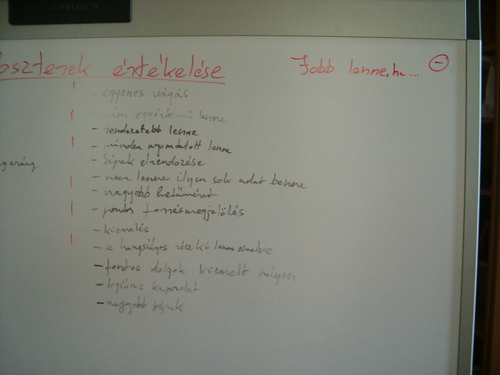 poszterek értékelése
Jobb lenne, ha... -
- egyenes vágás
- cím egyértelmű lenne
- rendezetebb lenne
- minden nyomtatott lenne
- képek elrendezése
- nem lenne ilyen sok adat benne
- nagyobb betűméret
- pontos forrásmegjelölés
- kiemelés
- a hangsúlyos rész ki lenne emelve
- fontos dolgok kiemelt helyen
- logikus kapcsolat
- nagyobb képek